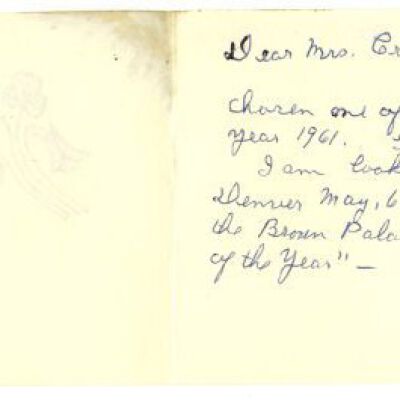 Dear Mrs. Cr
chosen one of
year 1961.
I am look
Denver May, 6
the Brown Pala
of the Year" —